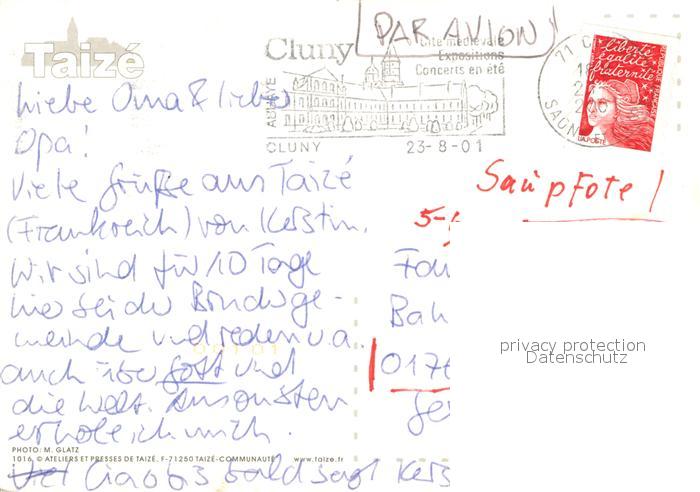 Taizé
PAR AVION
Cluny
Cité médiévale
Expositions
Concerts en été
ABBAYE
CLUNY 23-8-01
71 C
liberté
égalité
fraternité
LA POSTE
Liebe Oma & lieber
Opa!
Viele Grüße aus Taizé
(Frankreich) von Kerstin.
Wir sind für 10 Tage
hier bei der Brudege-
meinde und reden u.a.
auch über Gott und
die Welt. Ansonsten
erhole ich mich.
Ciao bis bald sagt Kers
Saupfote!
5-
Fam
Bah
0176
Ge
privacy protection
Datenschutz
PHOTO: M. GLATZ
1016 © ATELIERS ET PRESSES DE TAIZÉ, F-71250 TAIZÉ-COMMUNAUTÉ www.taize.fr